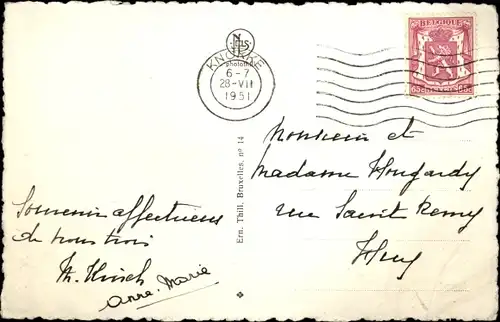 NELS
KNOKKE
photothill
6-7
28-VII
1951
BELGIQUE
BELGIË
65c 65c
Ern. Thill, Bruxelles, nº 14
Monsieur et
Madame Hougardy
rue Saint Remy
Huy
Souvenir affectueux
de nous trois
M. Hirsch
Anne-Marie